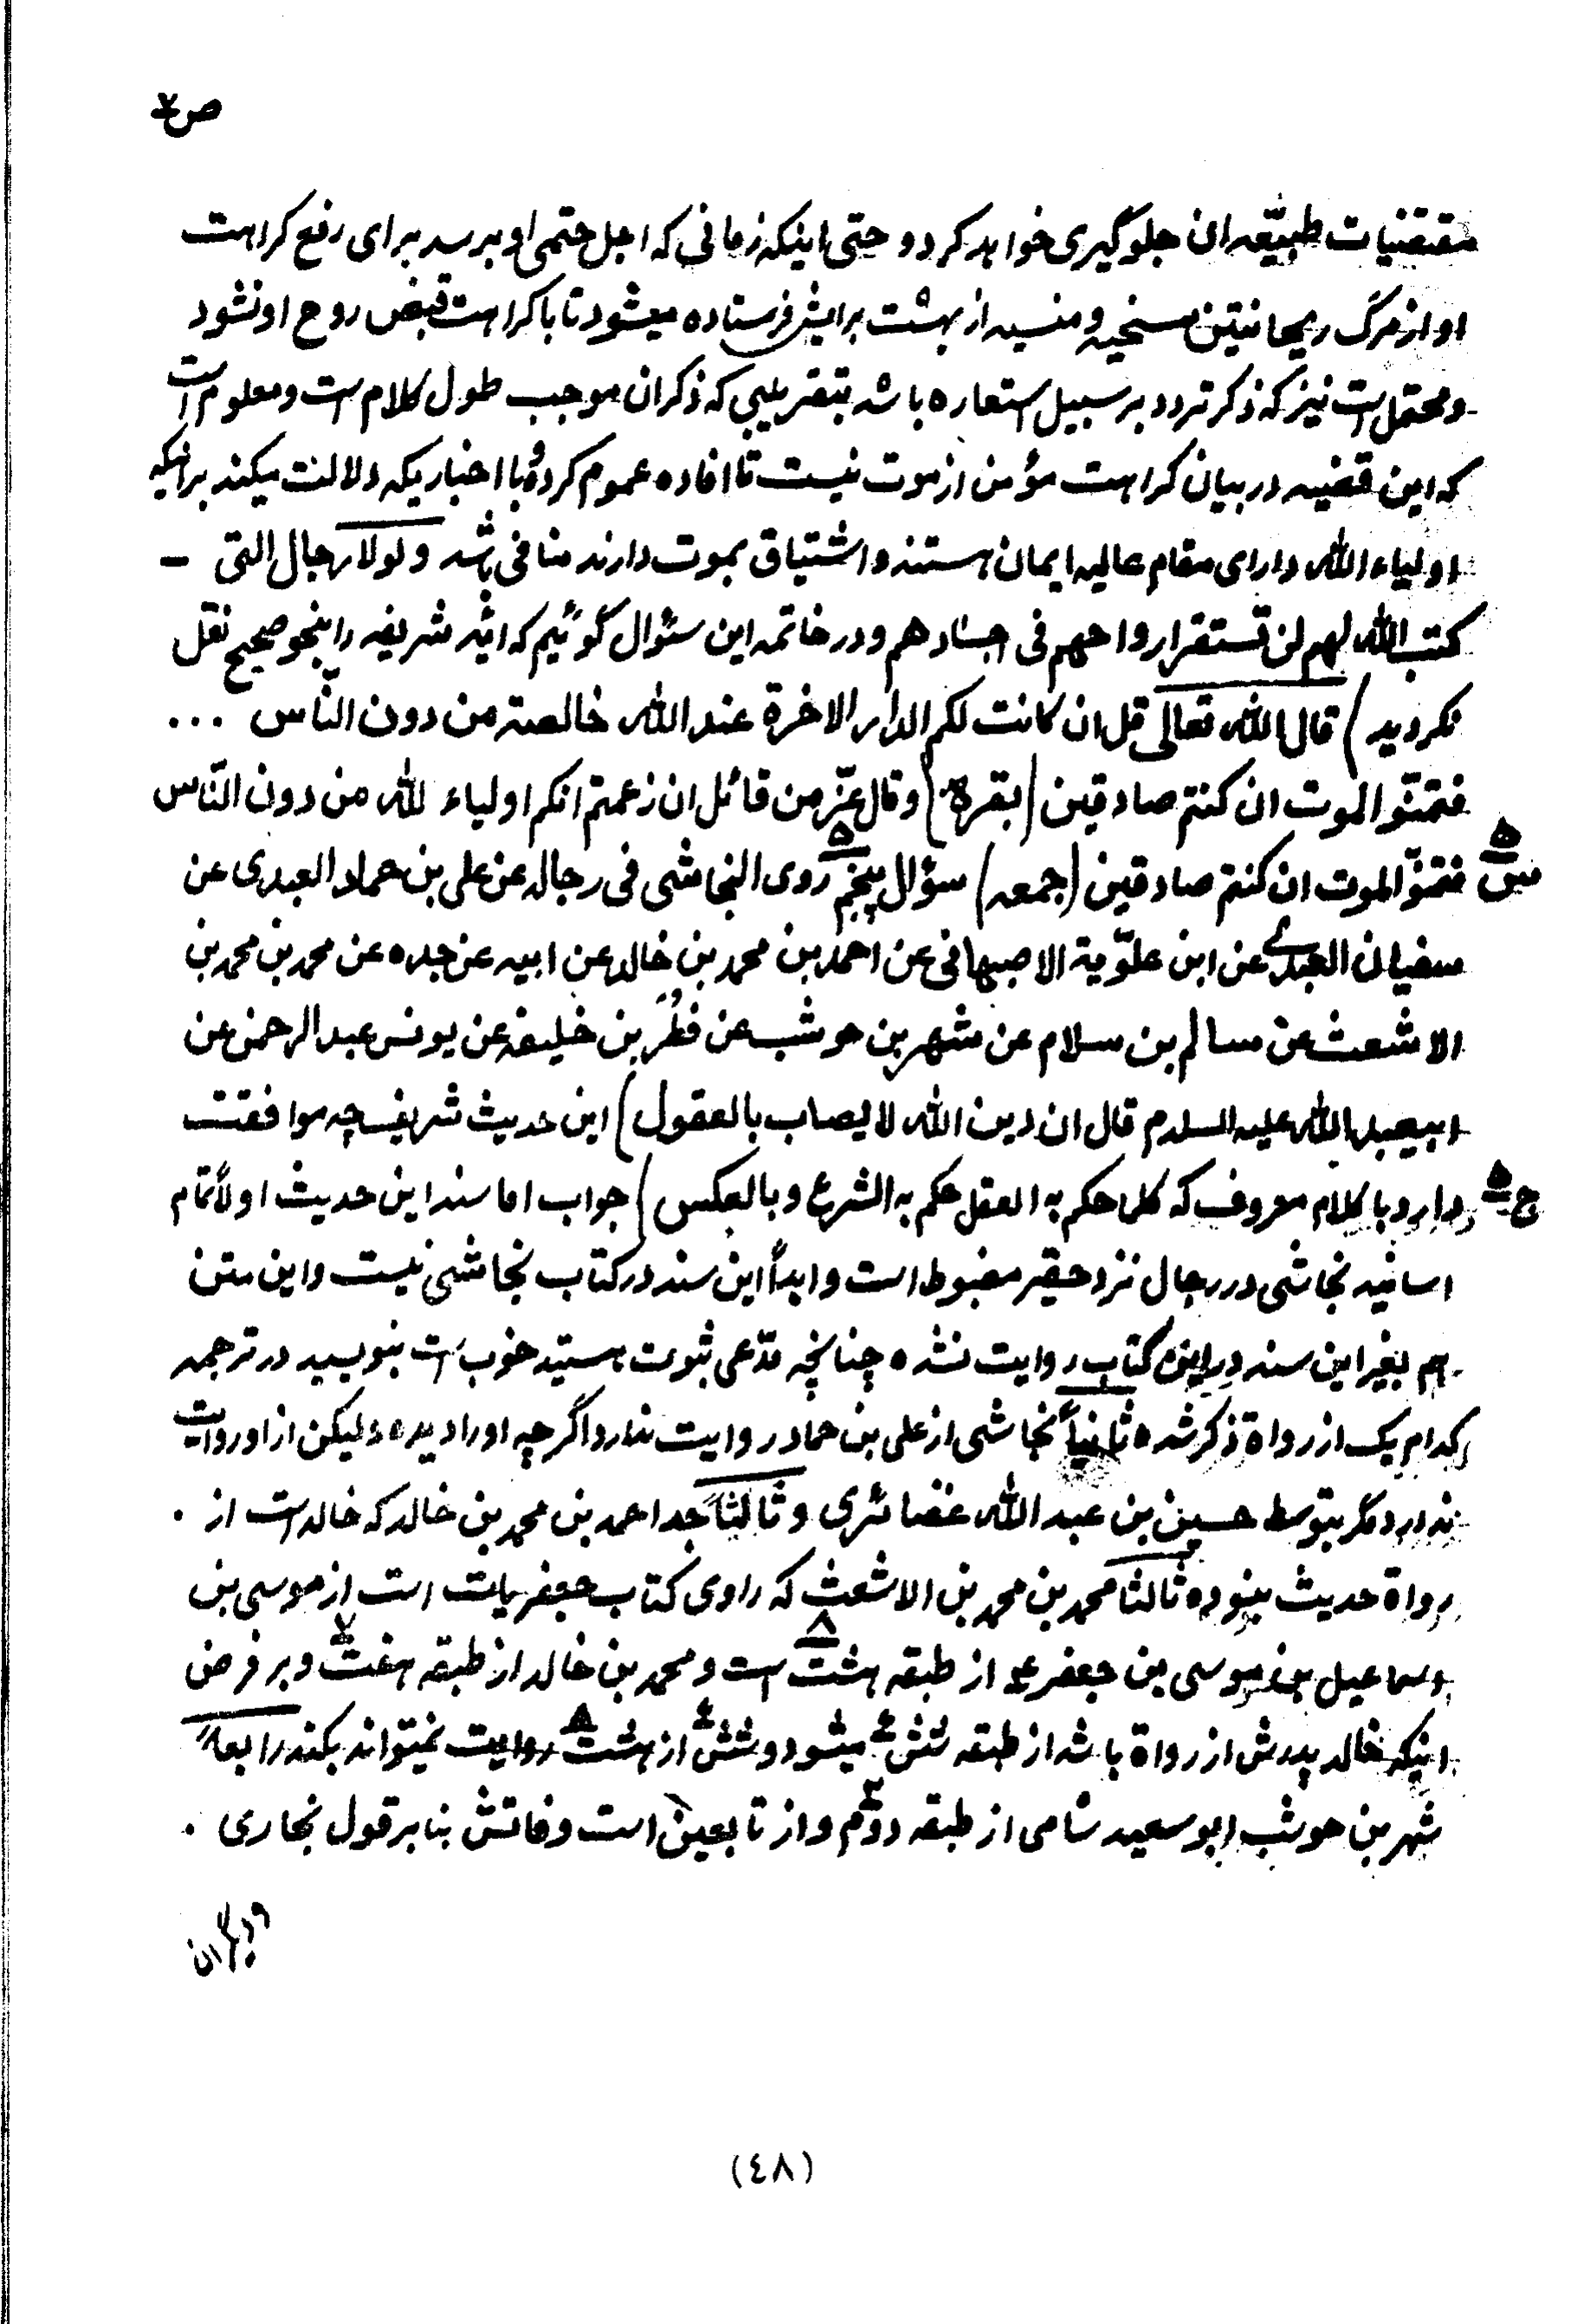 ص۷
مقتضیات طبیعه ان جلوگیری خواهد کرد و حتی اینکه زمانی که اجل حتمی او برسد برای رفع کراهت
او از مرگ ریحانتین مسخیه و منسیه از بهشت برایش فرستاده میشود تا با کراهت قبض روح او نشود
و محتمل است نیز که ذکر تردد بر سبیل استعاره باشد بتقریبی که ذکر ان موجب طول کلام است و معلوم است
که این قضیه در بیان کراهت مؤمن از موت نیست تا افاده عموم کرده و با اخباریکه دلالت میکند بر اینکه
اولیاء الله دارای مقام عالیه ایمان هستند و اشتیاق بموت دارند منافی باشد ولولا رجال التی –
کتب الله لهم لن تستقر ارواحهم فی اجسادهم و در خاتمه این سئوال گوئیم که ایه شریفه را بنحو صحیح نقل
نکردید) قال الله تعالی قل ان کانت لکم الدار الاخرة عند الله خالصة من دون الناس ...
فتمنّوا الموت ان کنتم صادقین (بقره) وقال عزّ من قائل ان زعمتم انکم اولیاء لله من دون النّاس
س۵ فتمنّوا الموت ان کنتم صادقین (جمعه) سؤال پنجم ۵ روی النجاشی فی رجاله عن علی بن حماد العبدی عن
سفیان العبدی عن ابن علوّیة الاصبهانی عن احمد بن محمد بن خالد عن ابیه عن جده عن محمد بن محمد بن
الاشعث عن سالم بن سلام عن شهر بن حوشب عن فطر بن خلیفه عن یونس عبد الرحمن عن
ابیعبد الله علیه السلام قال ان دین الله لا یصاب بالعقول) این حدیث شریف چه موافقت
ج۵ دارد با کلام معروف که کلما حکم به العقل حکم به الشرع و بالعکس) جواب اما سند این حدیث اولاً تمام
اسانید نجاشی در رجال نزد حقیر مضبوط است و ابداً این سند در کتاب نجاشی نیست و این متن
هم بغیر این سند در این کتاب روایت نشده چنانچه مدّعی ثبوت هستید خوب است بنویسید در ترجمه
کدام یک از رواة ذکر شده ثانیاً نجاشی از علی بن حماد روایت ندارد اگر چه او را دیده ولیکن از او روایت
ندارد مگر بتوسط حسین بن عبد الله غضائری و ثالثاً جد احمد بن محمد بن خالد که خالد است از .
رواة حدیث نبوده ثالثا محمد بن محمد بن الاشعث که راوی کتاب جعفریات است از موسی بن
اسماعیل بن موسی بن جعفر ع از طبقه هشت ۸ است و محمد بن خالد از طبقه هفت ۷ و بر فرض
اینکه خالد پدرش از رواة باشد از طبقه شش ۶ میشود و شش ۶ از هشت ۸ روایت نمیتواند بکند رابعاً
شهر بن حوشب ابو سعید شامی از طبقه دوّم ۲ و از تابعین است وفاتش بنابر قول بخاری .
(٤٨)